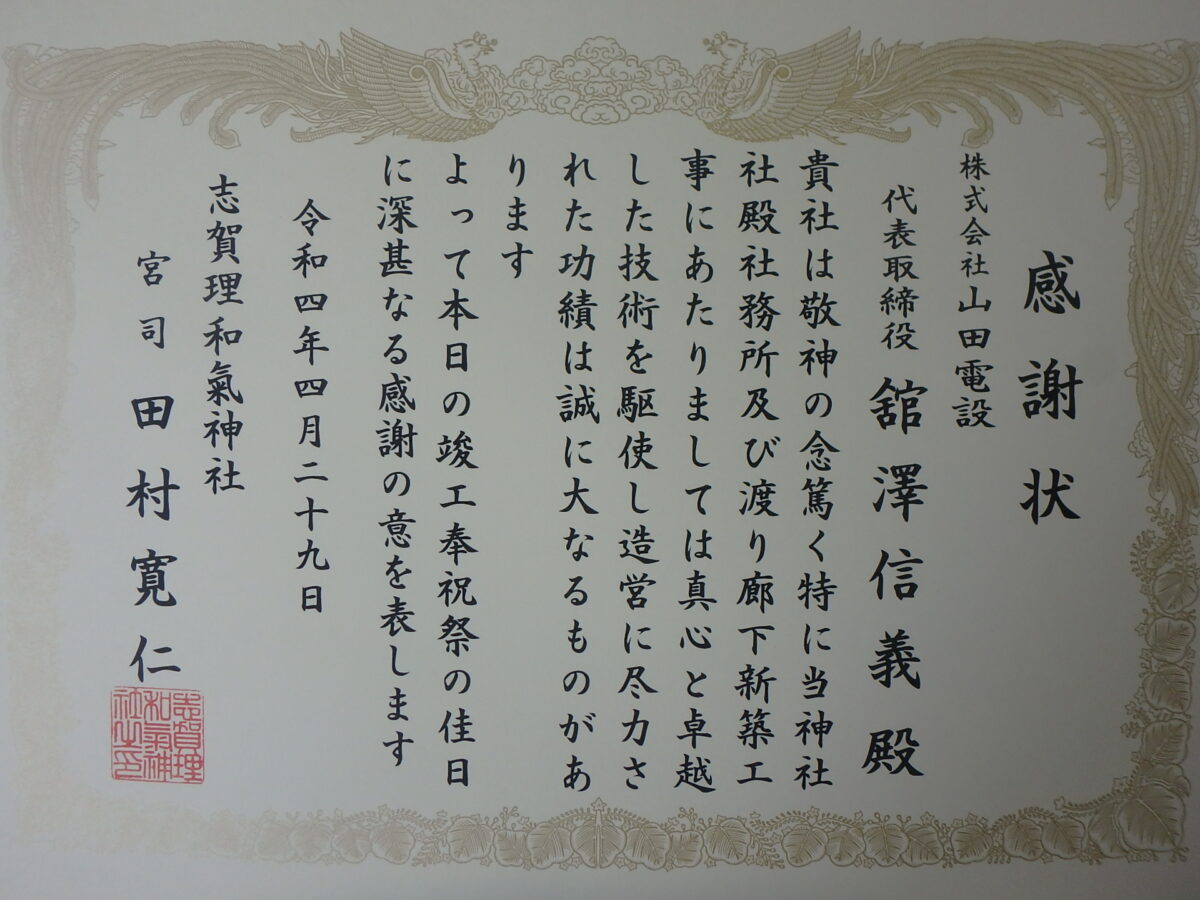 感謝状
株式会社山田電設
代表取締役 舘澤信義殿
貴社は敬神の念篤く特に当神社
社殿社務所及び渡り廊下新築工
事にあたりましては真心と卓越
した技術を駆使し造営に尽力さ
れた功績は誠に大なるものがあ
ります
よって本日の竣工奉祝祭の佳日
に深甚なる感謝の意を表します
令和四年四月二十九日
志賀理和氣神社
宮司 田村寛仁
志賀理
和氣神
社之印